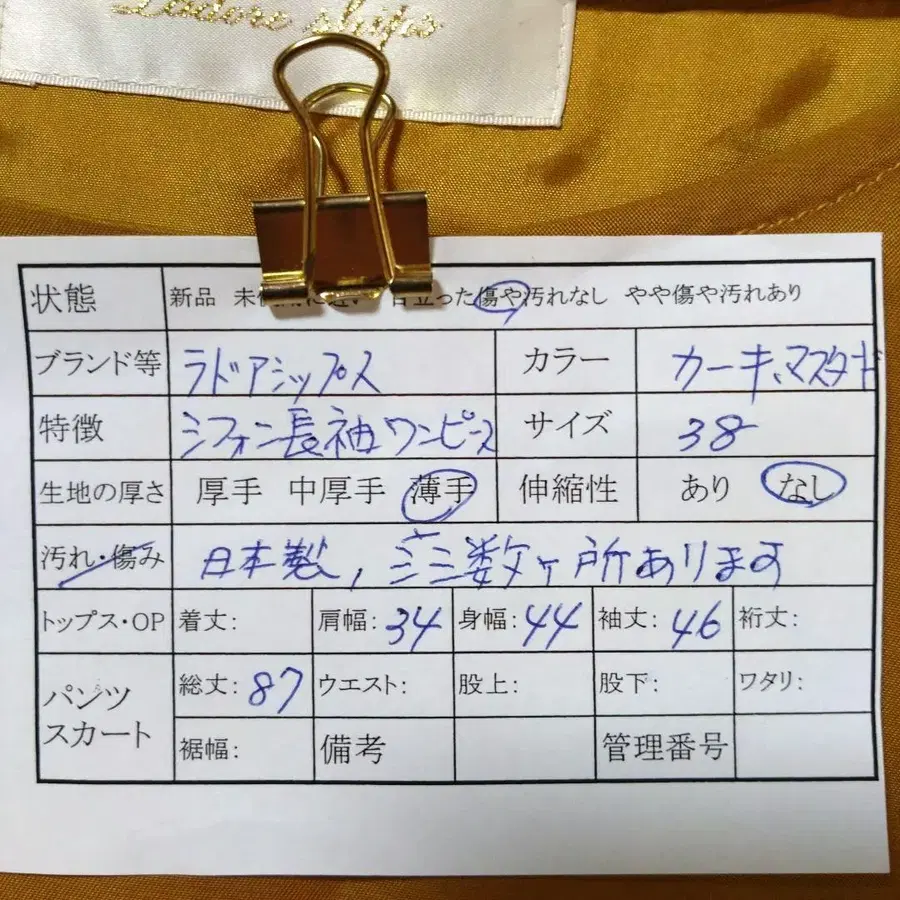 状態 新品 目立った傷や汚れなし やや傷や汚れあり
ブランド等 ラドアシップス カラー カーキ、マスタード
特徴 シフォン長袖ワンピース サイズ 38
生地の厚さ 厚手 中厚手 薄手 伸縮性 あり なし
汚れ・傷み 日本製, 数ヶ所あります
トップス・OP 着丈: 肩幅:34 身幅:44 袖丈:46 裄丈:
パンツ スカート 総丈:87 ウエスト: 股上: 股下: ワタリ:
裾幅: 備考 管理番号